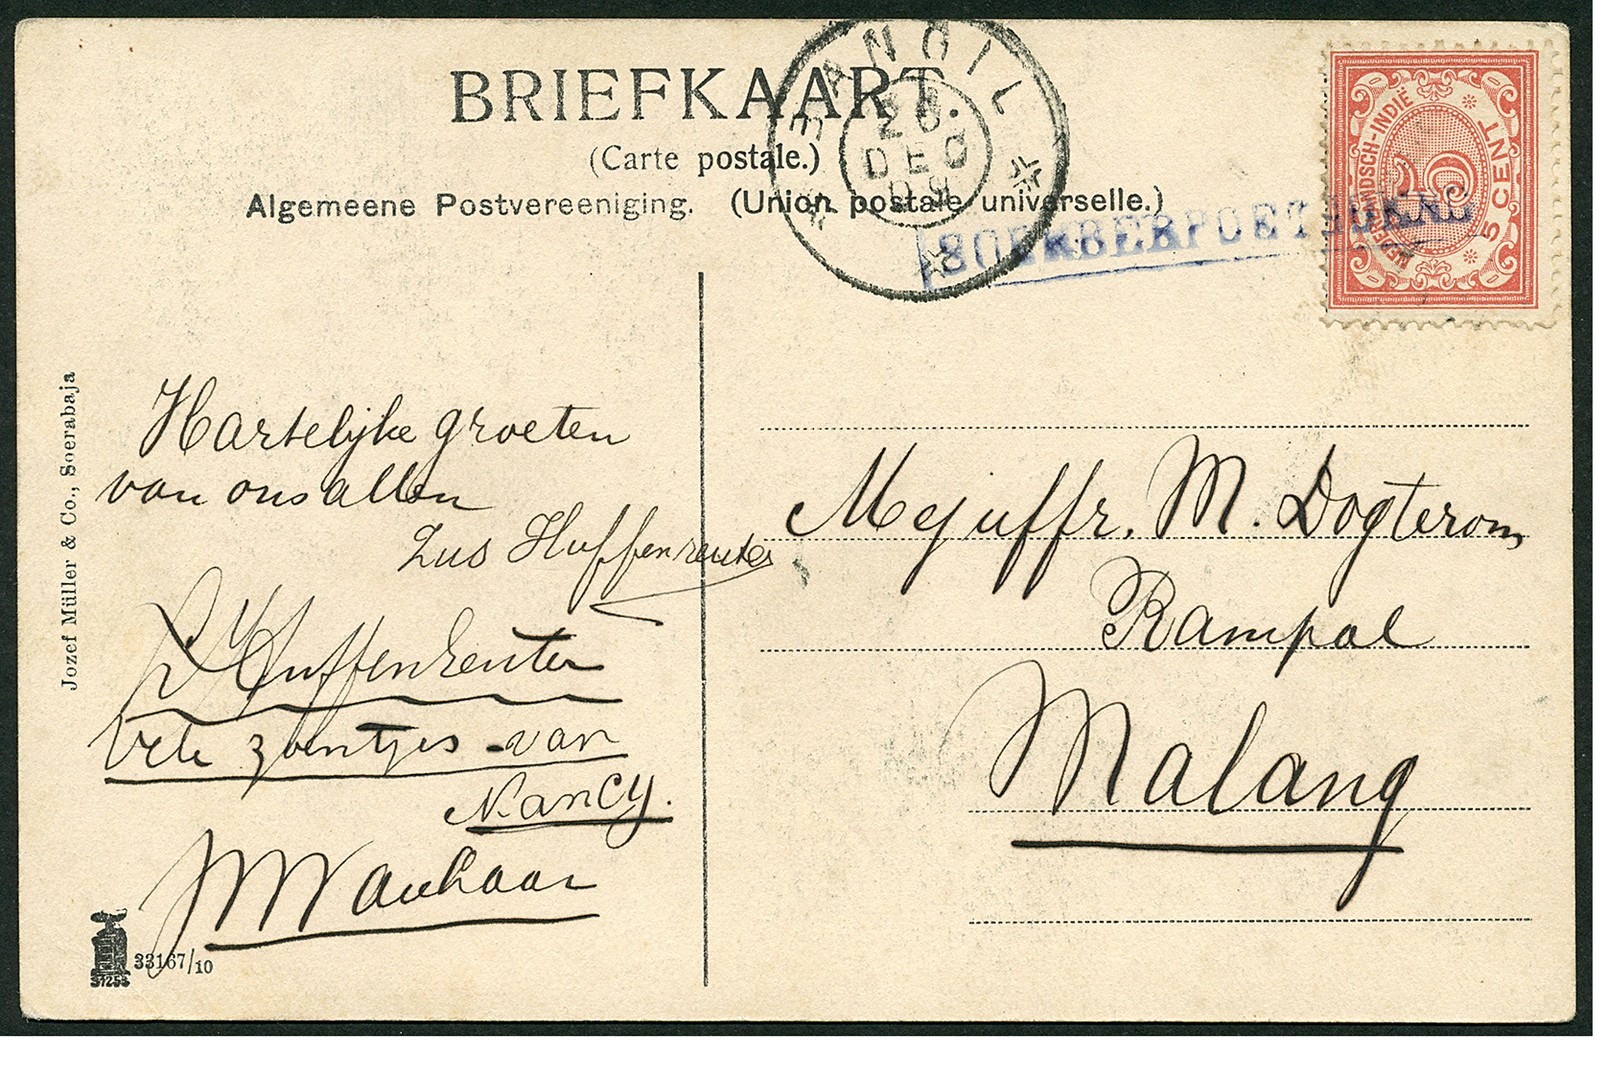 BRIEFKAART.
(Carte postale.)
Algemeene Postvereeniging. (Union postale universelle.)
BANGIL
DEC
09
SOEMBERPOETJOENG
NEDERLANDSCH-INDIË
5 CENT
Hartelijke groeten
van ons allen
Lus Huffenreuter
Huffenreuter
Vele zoentjes van
Nancy.
Mejuffr. M. Dogterom
Rampal
Malang
Jozef Müller & Co., Soerabaja
33167/10